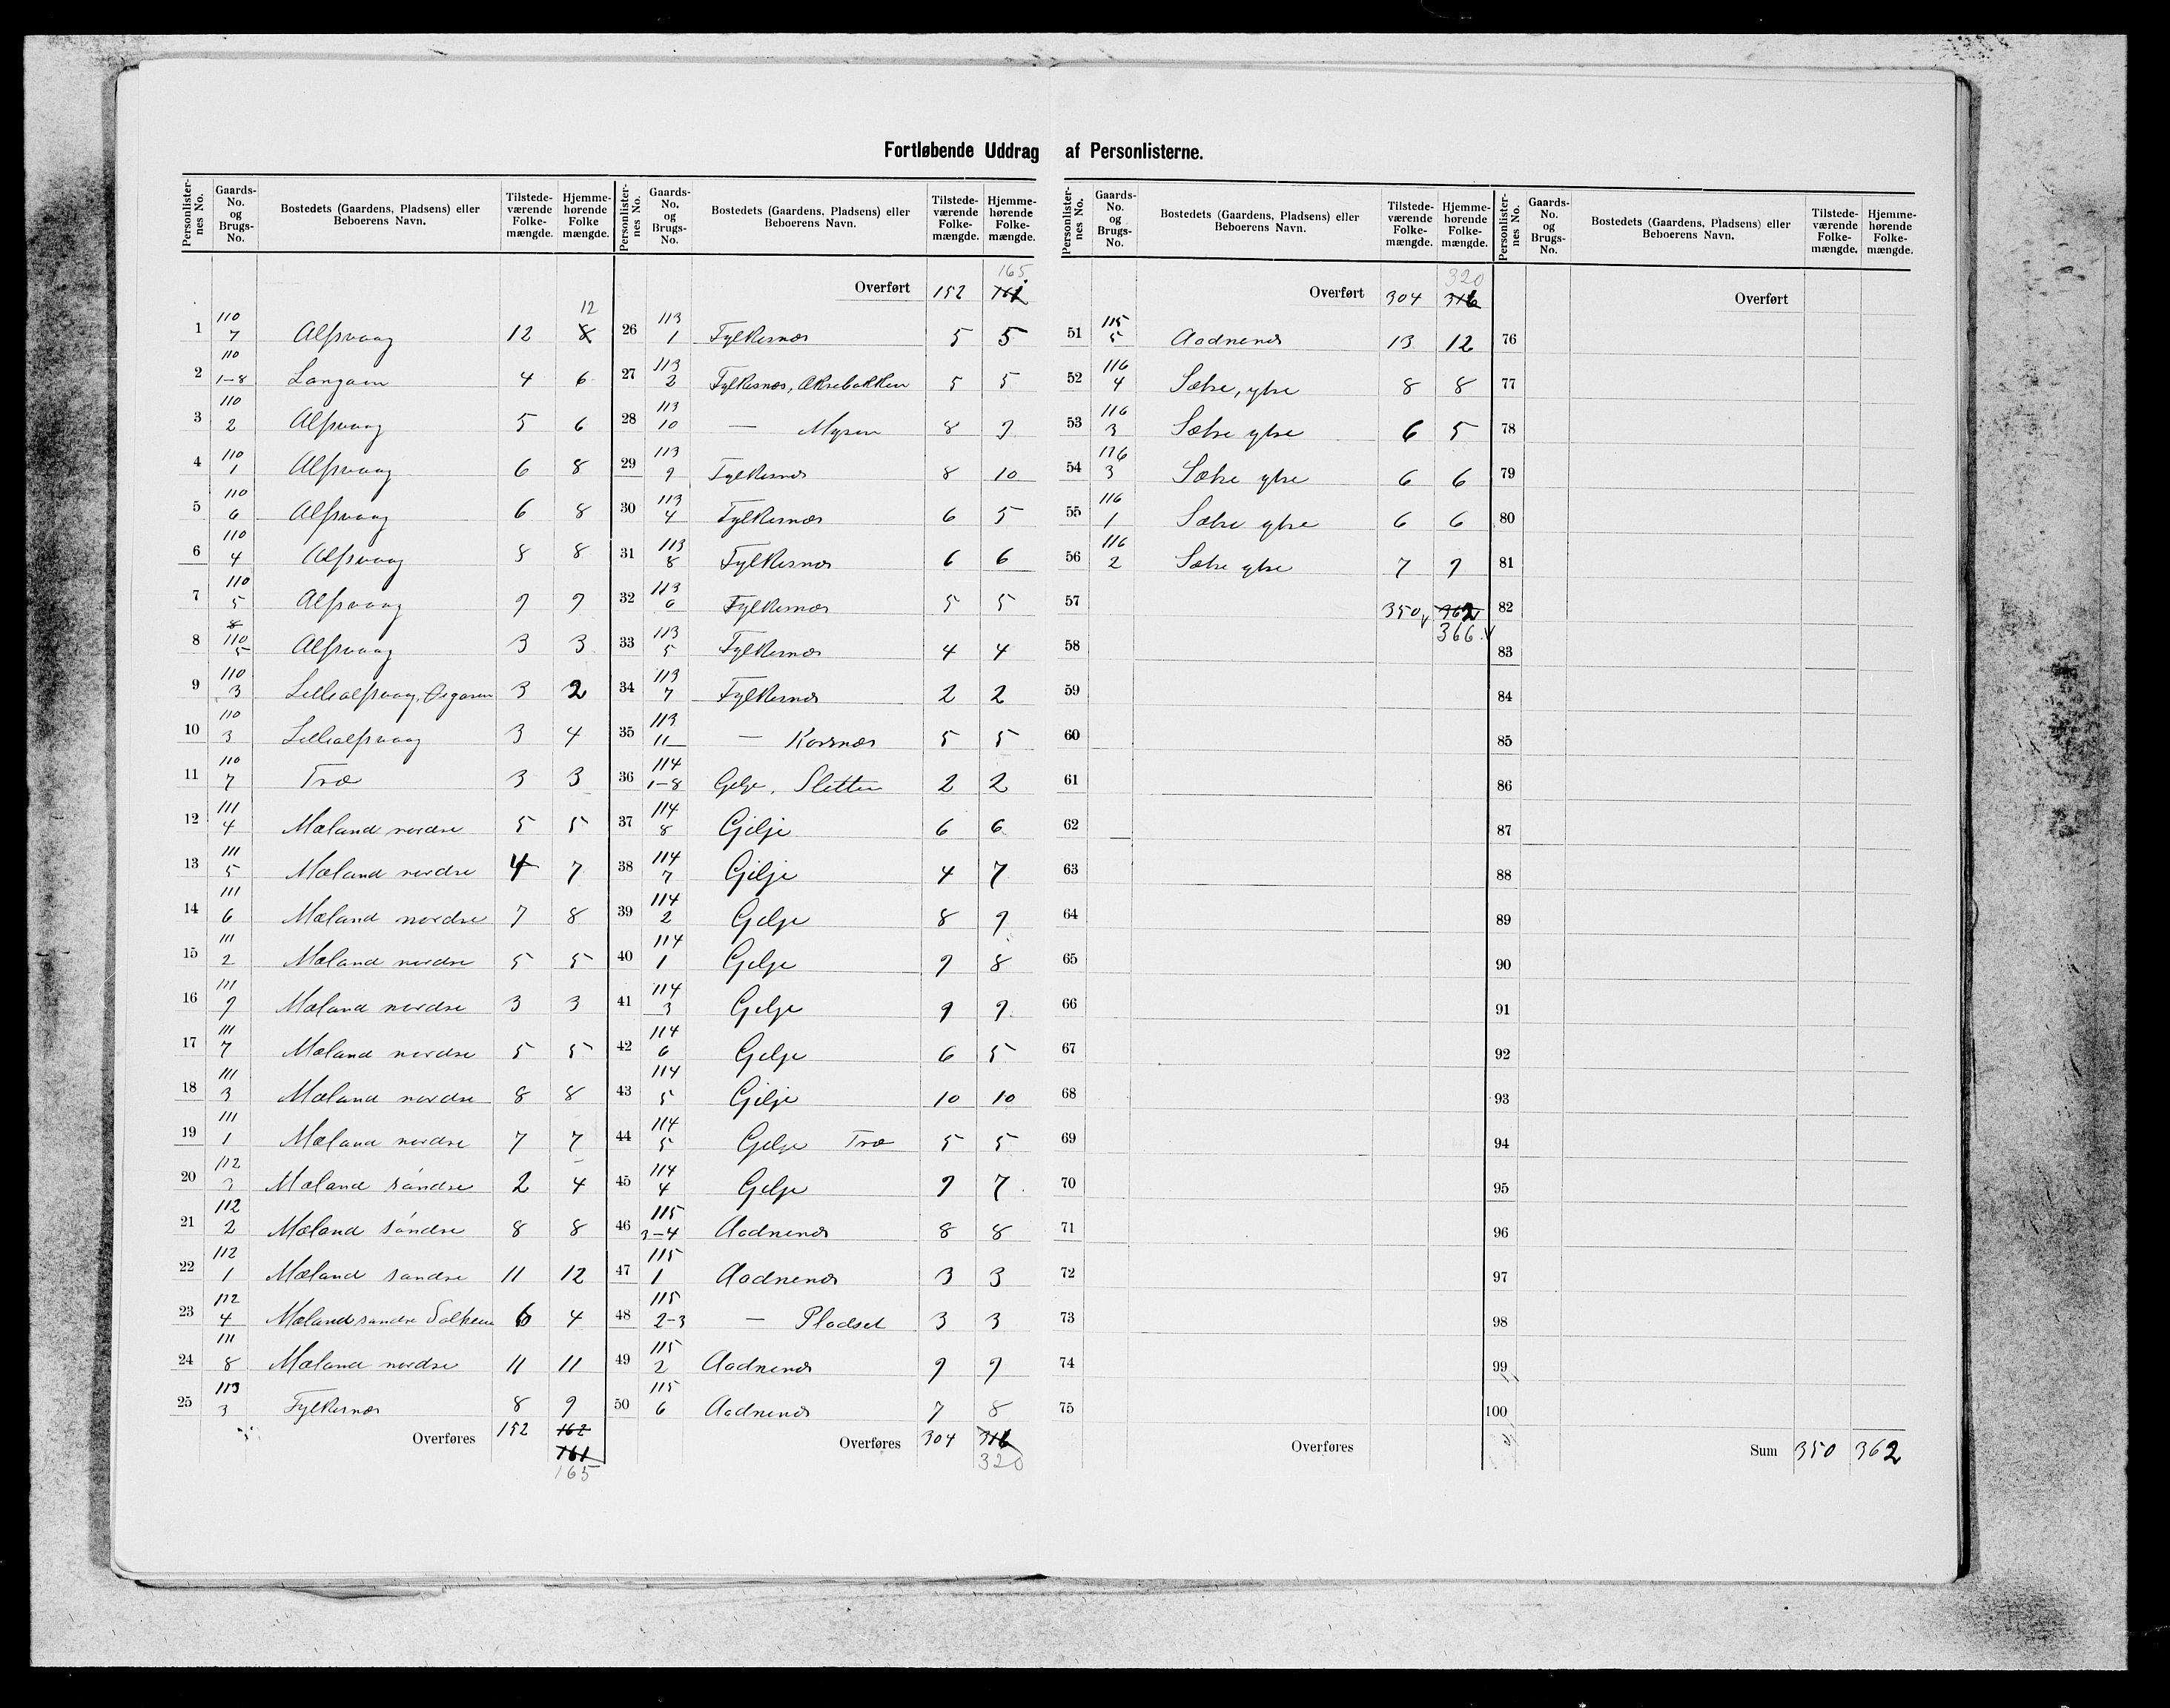 Fortløbende Uddrag af Personlisterne.
Personlister-nes No. | Gaards-No. og Brugs-No. | Bostedets (Gaardens, Pladsens) eller Beboerens Navn. | Tilstede-værende Folke-mængde. | Hjemme-hørende Folke mængde.
1 110 7 Alfsvaag 12 8 12
2 110 1-8 Langaen 4 6
3 110 2 Alfsvaag 5 6
4 110 1 Alfsvaag 6 8
5 110 6 Alfsvaag 6 8
6 110 4 Alfsvaag 8 8
7 110 5 Alfsvaag 9 9
8 110 5 Alfsvaag 3 3
9 110 3 Lillealfsvaag, 3 2
10 110 3 Lillealfsvaag 3 4
11 110 7 Træ 3 3
12 111 4 Mæland nordre 5 5
13 111 5 Mæland nordre 4 7
14 111 6 Mæland nordre 7 8
15 111 2 Mæland nordre 5 5
16 111 9 Mæland nordre 3 3
17 111 7 Mæland nordre 5 5
18 111 3 Mæland nordre 8 8
19 111 1 Mæland nordre 7 7
20 112 3 Mæland søndre 2 4
21 112 2 Mæland søndre 8 8
22 112 1 Mæland søndre 11 12
23 112 4 Mæland søndre 6 4
24 111 8 Mæland nordre 11 11
25 113 3 Fylkesnæs 8 9
Overføres 152 162
161
165
Personlister-nes No. | Gaards-No. og Brugs-No. | Bostedets (Gaardens, Pladsens) eller Beboerens Navn. | Tilstede-værende Folke-mængde. | Hjemme-hørende Folke-mængde.
165
Overført 152 161
26 113 1 Fylkesnæs 5 5
27 113 2 Fylkesnæs, Aksebakken 5 5
28 113 10 — Myren 8 9
29 113 9 Fylkesnæs 8 10
30 113 4 Fylkesnæs 6 5
31 113 8 Fylkesnæs 6 6
32 113 6 Fylkesnæs 5 5
33 113 5 Fylkesnæs 4 4
34 113 7 Fylkesnæs 2 2
35 113 11 — Korsnæs 5 5
36 114 1-8 Gilje, Sletten 2 2
37 114 8 Gilje 6 6
38 114 7 Gilje 4 7
39 114 2 Gilje 8 9
40 114 1 Gilje 9 8
41 114 3 Gilje 9 9
42 114 6 Gilje 6 5
43 114 5 Gilje 10 10
44 114 5 Gilje Træ 5 5
45 114 4 Gilje 9 7
46 115 3-4 Aadnenæs 8 8
47 115 1 Aadnenæs 3 3
48 115 2-3 — Pladset 3 3
49 115 2 Aadnenæs 9 9
50 115 6 Aadnenæs 7 8
Overføres 304 316
320
Personlister-nes No. | Gaards-No. og Brugs-No. | Bostedets (Gaardens, Pladsens) eller Beboerens Navn. | Tilstede-værende Folke-mængde. | Hjemme-hørende Folke-mængde.
320
Overført 304 316
51 115 5 Aadnenæs 13 12
52 116 4 Sætre, ytre 8 8
53 116 3 Sætre ytre 6 5
54 116 3 Sætre ytre 6 6
55 116 1 Sætre ytre 6 6
56 116 2 Sætre ytre 7 9
57 350 362
366
58
59
60
61
62
63
64
65
66
67
68
69
70
71
72
73
74
75
Overføres
Personlister-nes No. | Gaards-No. og Brugs-No. | Bostedets (Gaardens, Pladsens) eller Beboerens Navn. | Tilstede-værende Folke-mængde. | Hjemme-hørende Folke-mængde.
Overført
76
77
78
79
80
81
82
83
84
85
86
87
88
89
90
91
92
93
94
95
96
97
98
99
100
Sum 350 362